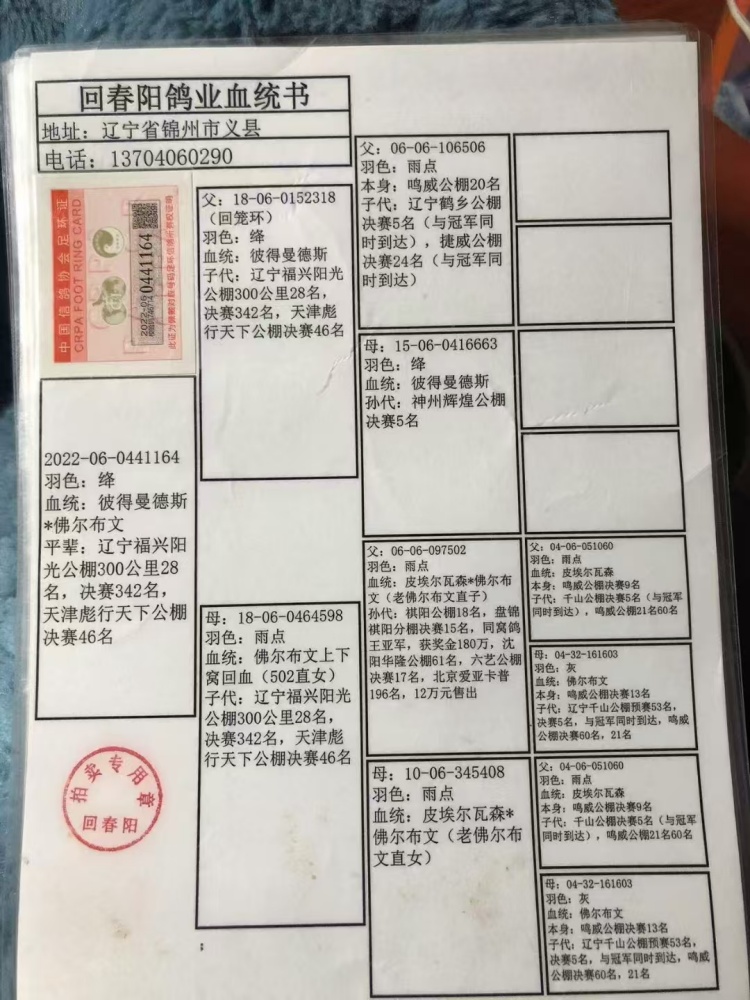 回春阳鸽业血统书
地址：辽宁省锦州市义县
电话：13704060290
中国信鸽协会足环证
CRPA FOOT RING CARD
2022-06
0441164
2022-06-0441164
羽色：绛
血统：彼得曼德斯
*佛尔布文
平辈：辽宁福兴阳
光公棚300公里28
名，决赛342名，
天津彪行天下公棚
决赛46名
拍卖专用章
回春阳
父：18-06-0152318
（回笼环）
羽色：绛
血统：彼得曼德斯
子代：辽宁福兴阳光
公棚300公里28名，
决赛342名，天津彪
行天下公棚决赛46名
母：18-06-0464598
羽色：雨点
血统：佛尔布文上下
窝回血（502直女）
子代：辽宁福兴阳光
公棚300公里28名，
决赛342名，天津彪
行天下公棚决赛46名
父：06-06-106506
羽色：雨点
本身：鸣威公棚20名
子代：辽宁鹤乡公棚
决赛5名（与冠军同
时到达），捷威公棚
决赛24名（与冠军同
时到达）
母：15-06-0416663
羽色：绛
血统：彼得曼德斯
孙代：神州辉煌公棚
决赛5名
父：06-06-097502
羽色：雨点
血统：皮埃尔瓦森*佛尔布
文（老佛尔布文直子）
孙代：祺阳公棚18名，盘锦
祺阳分棚决赛15名，同窝鸽
王亚军，获奖金180万，沈
阳华隆公棚61名，六艺公棚
决赛17名，北京爱亚卡普
196名，12万元售出
母：10-06-345408
羽色：雨点
血统：皮埃尔瓦森*
佛尔布文（老佛尔布
文直女）
父：04-06-051060
羽色：雨点
血统：皮埃尔瓦森
本身：鸣威公棚决赛9名
子代：千山公棚决赛5名（与冠军
同时到达），鸣威公棚21名60名
母：04-32-161603
羽色：灰
血统：佛尔布文
本身：鸣威公棚决赛13名
子代：辽宁千山公棚预赛53名，
决赛5名，与冠军同时到达，鸣威
公棚决赛60名，21名
父：04-06-051060
羽色：雨点
血统：皮埃尔瓦森
本身：鸣威公棚决赛9名
子代：千山公棚决赛5名（与冠军
同时到达），鸣威公棚21名60名
母：04-32-161603
羽色：灰
血统：佛尔布文
本身：鸣威公棚决赛13名
子代：辽宁千山公棚预赛53名，
决赛5名，与冠军同时到达，鸣威
公棚决赛60名，21名
；